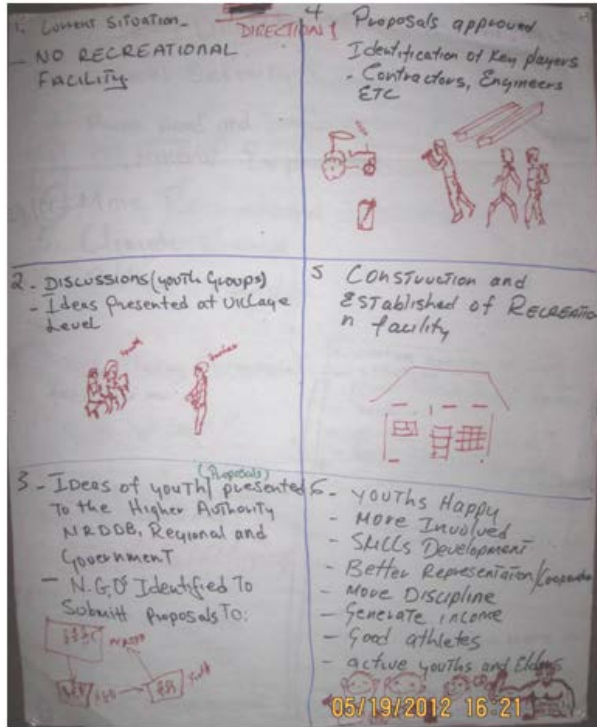 DIRECTION 1
1. Current Situation -
- NO RECREATIONAL
FACILITY
2 - DISCUSSIONS (youth Groups)
- Ideas Presented at Village
Level
youth
3 - Ideas of youth / presented
(Proposals)
To the Higher Authority
NRDDB, Regional and
Government
- N.G.O Identified To
Submitt Proposals To:
NRDDB
NGO
Youth
4 Proposals approved
Identification of Key players
- Contractors, Engineers
ETC
5 Construction and
Established of RECREATIO
n facility
6 - youths Happy
- More Involved
- Skills Development
- Better Representation/Cooperation
- More Discipline
- Generate income
- Good athletes
- active youths and Elders
05/19/2012 16:21